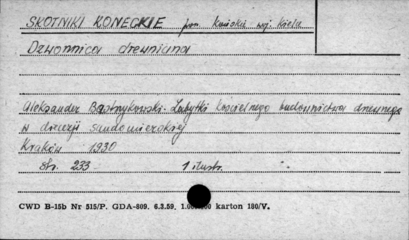 SKOTNIKI KONECKIE pow. Końskie woj. Kiele
Dzwonnica drewniana
Aleksander Bastrzykowski. Zabytki kościelnego budownictwa drewnego
w diecezji sandomierskiej
Kraków 1930
str. 233 1 ilustr.
CWD B-15b Nr 515/P. GDA-669. 6.3.59. karton 180/V.